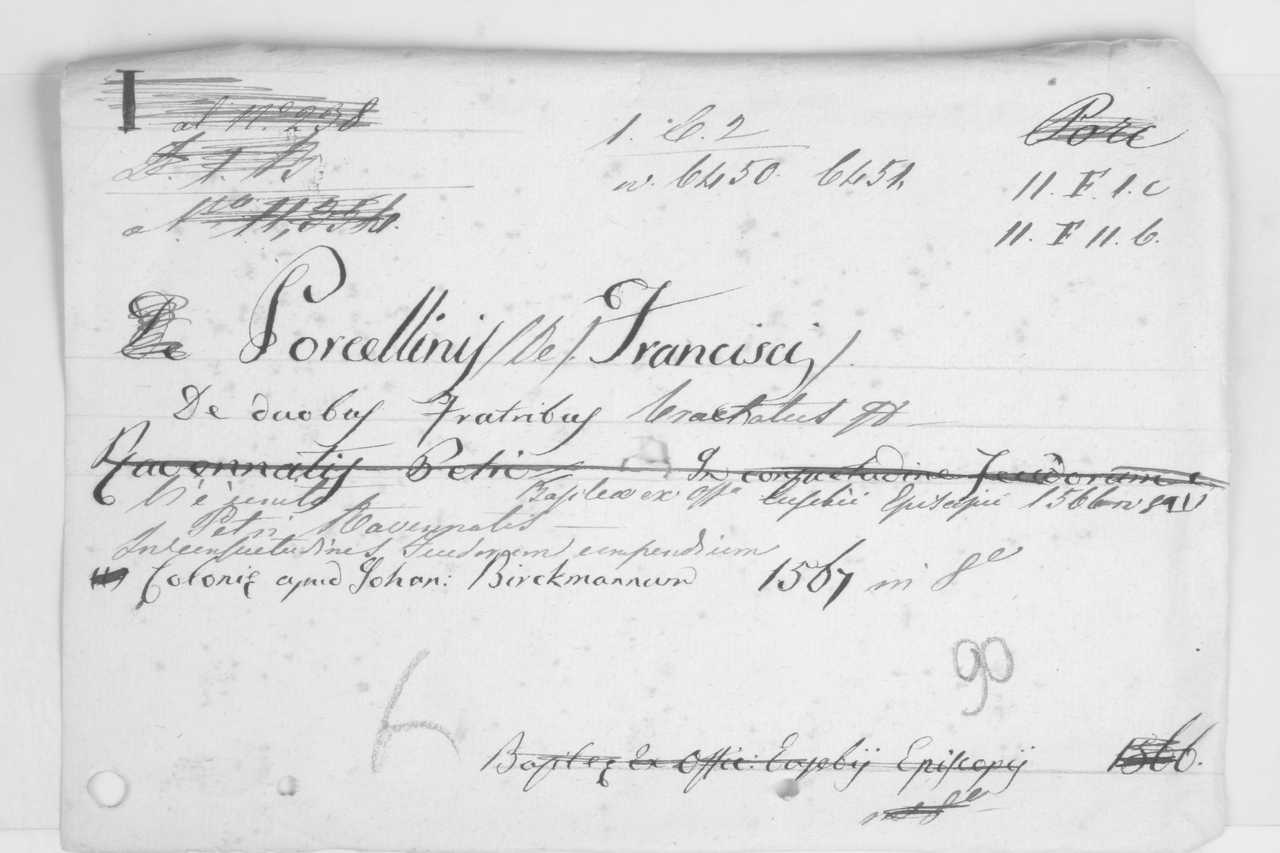 al N.º 238
1. C. 2
Porc
n. 6450. 6451.
11. F. 1. c
11. F 11. 6.
De Porcellinis (De) Francisci
De duobus Fratribus Tractatus &
Ravennatis Petri In consuetudine Feudorum
V'è unito Basileæ ex Offª Eusebii Episcopii 1566 in 8º
Petri Ravennatis
In consuetudines Feudorum compendium
Colonię apud Johan: Birckmannum 1567 in 8º
90
Basileę Ex Offic: Eusebij Episcopij 1566.
in 8º